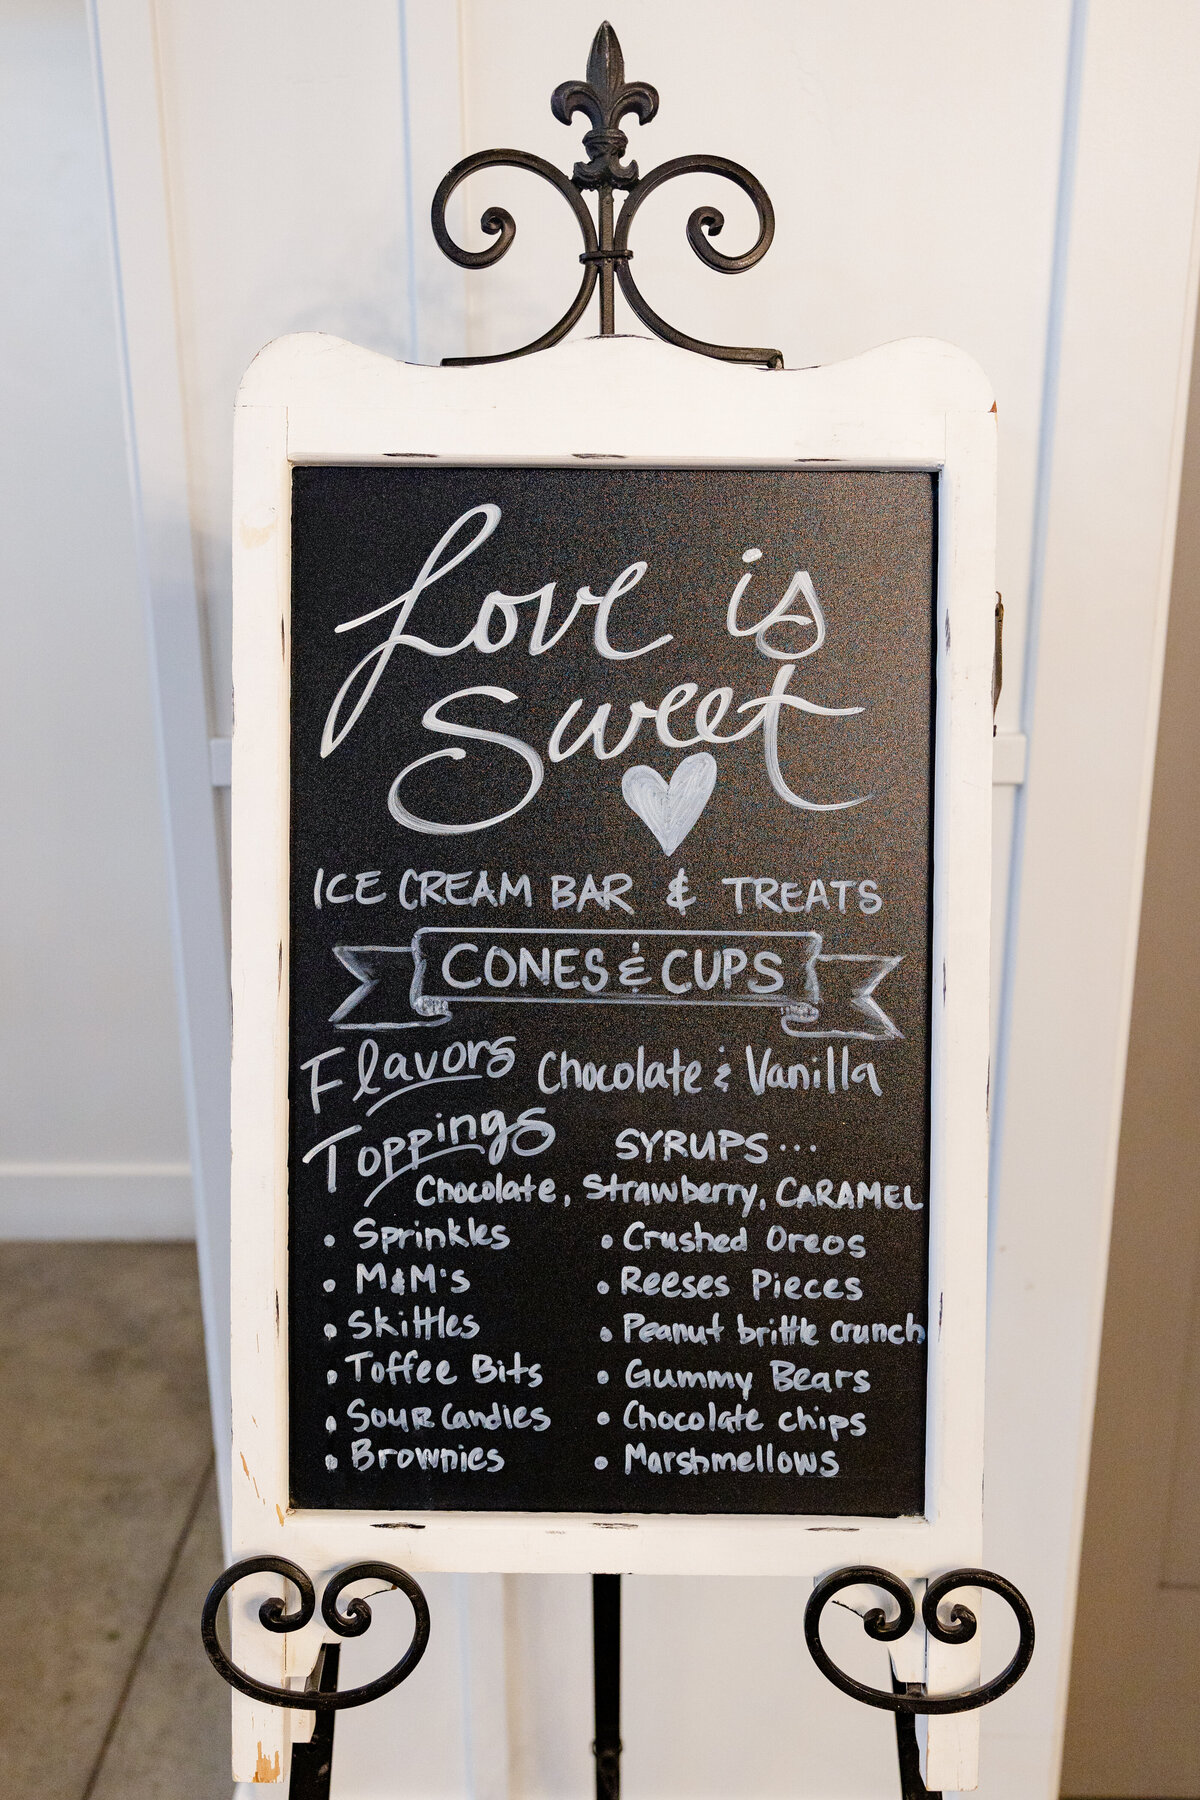 Love is
Sweet
ICE CREAM BAR & TREATS
CONES & CUPS
Flavors Chocolate & Vanilla
Toppings SYRUPS...
Chocolate, Strawberry, CARAMEL
• Sprinkles • Crushed Oreos
• M&M's • Reeses Pieces
• Skittles • Peanut brittle crunch
• Toffee Bits • Gummy Bears
• SOUR Candies • Chocolate chips
• Brownies • Marshmellows